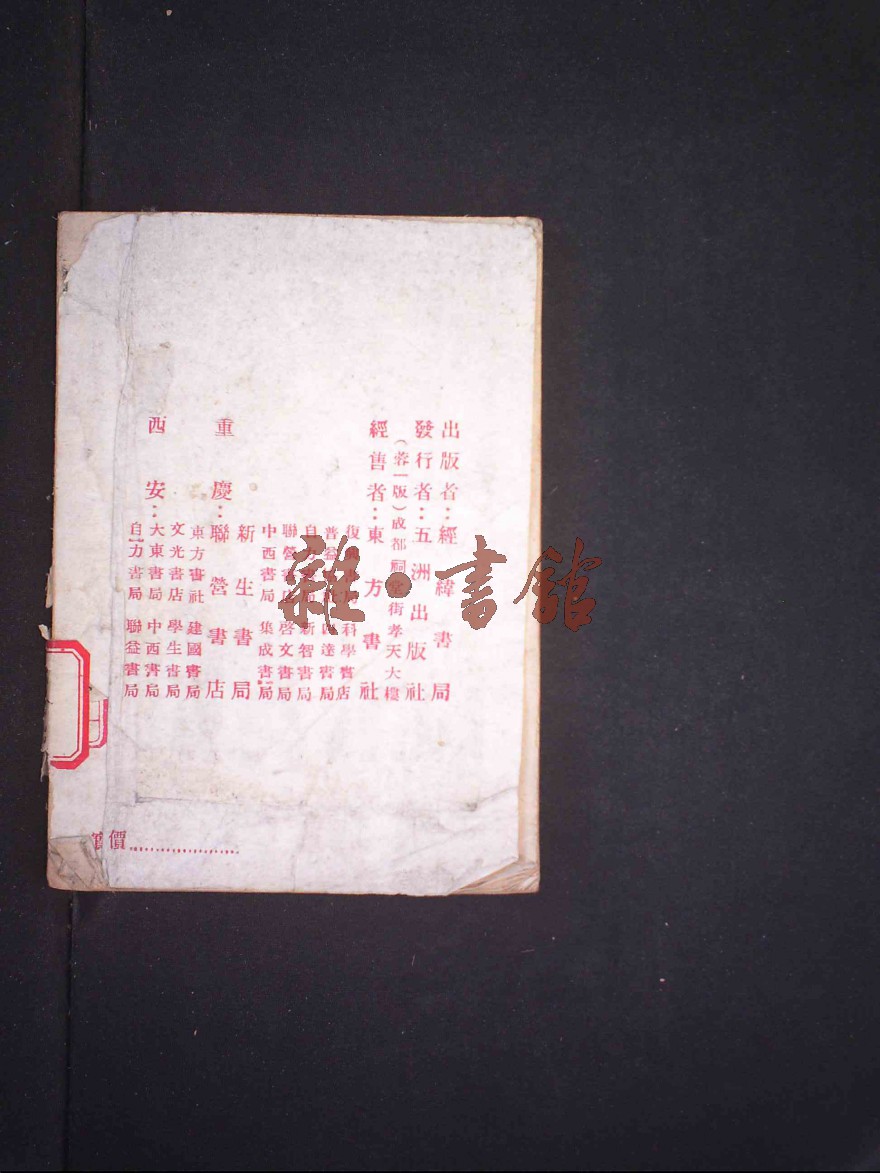 出版者：經緯書局
發行者：五洲出版社
（蓉一版）成都祠堂街孝天大樓
經售者：東方書社
科學書店
達書局
新智書局
聯營書店 啓文書局
中西書局 集成書局
新生書局
重慶：聯營書店
東方書社 建國書局
文光書店 學生書局
西安：大東書局 中西書局
自力書局 聯益書局
實價
雜·書館